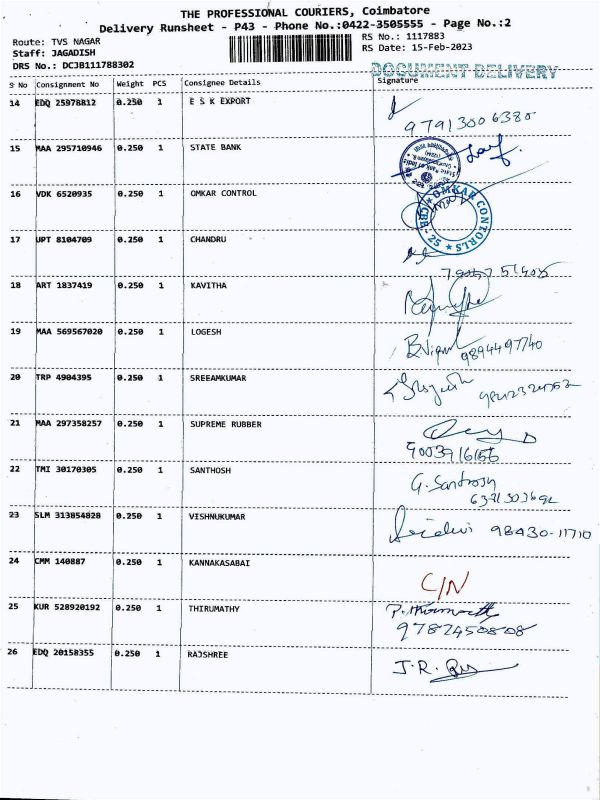 THE PROFESSIONAL COURIERS, Coimbatore
Delivery Runsheet - P43 - Phone No.:0422-3505555 - Page No.:2
Route: TVS NAGAR
Staff: JAGADISH
DRS No.: DCJB111788302
RS No.: 1117883
RS Date: 15-Feb-2023
DOCUMENT DELIVERY
S No Consignment No Weight PCS Consignee Details Signature
14 EDQ 25978812 0.250 1 E S K EXPORT
97913006380
15 MAA 295710946 0.250 1 STATE BANK
State Bank of India
16 VDK 6520935 0.250 1 OMKAR CONTROL
OMKAR CONTORLS ★ CBE - 25 ★
17 UPT 8104709 0.250 1 CHANDRU
18 ART 1837419 0.250 1 KAVITHA
19 MAA 569567020 0.250 1 LOGESH
9894497740
20 TRP 4904395 0.250 1 SREEAMKUMAR
21 MAA 297358257 0.250 1 SUPREME RUBBER
9003916156
22 TMI 30170305 0.250 1 SANTHOSH
G. Santhosh
23 SLM 313854828 0.250 1 VISHNUKUMAR
98430-11710
24 CMM 140887 0.250 1 KANNAKASABAI
C/N
25 KUR 528920192 0.250 1 THIRUMATHY
9782450808
26 EDQ 20158355 0.250 1 RAJSHREE
J.R.